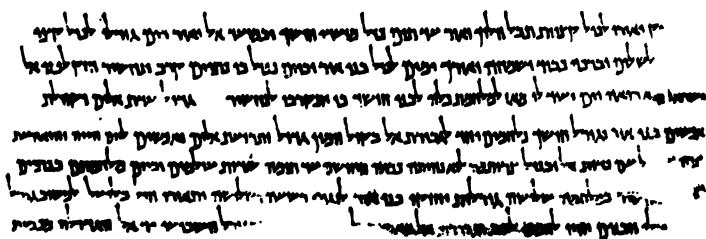 יאירו לכול קצוות תבל הלוך ואור עד תום כול מועדי חושך ובמועד אל יאיר רום גודלו לכול קצי
לשלום וברכה כבוד ושמחה ואורך ימים לכול בני אור וביום נפול בו כתיים קרב ונחשיר חזק לפני אל
ישראל הואה יום יעוד לו מאז למלחמת כלה לבני חושך בו יתקרבו לנחשיר גדול עדת אלים וקהלת
אנשים בני אור וגורל חושך נלחמים יחד לגבורת אל בקול המון גדול ותרועת אלים ואנשים ליום הווה והיאה עת
צרה עם פדות אל ובכול צרותמה לוא נהיתה כמוה מחושה עד תומה לפדות עולמים וביום מלחמתם בכתיים
במלחמה שלושה גורלות יחזקו בני אור לנגוף רשעה ושלושה יתאזרו חיל בליעל למשוב גורל
הבנים יהיו להמס לבב וגבורת אל